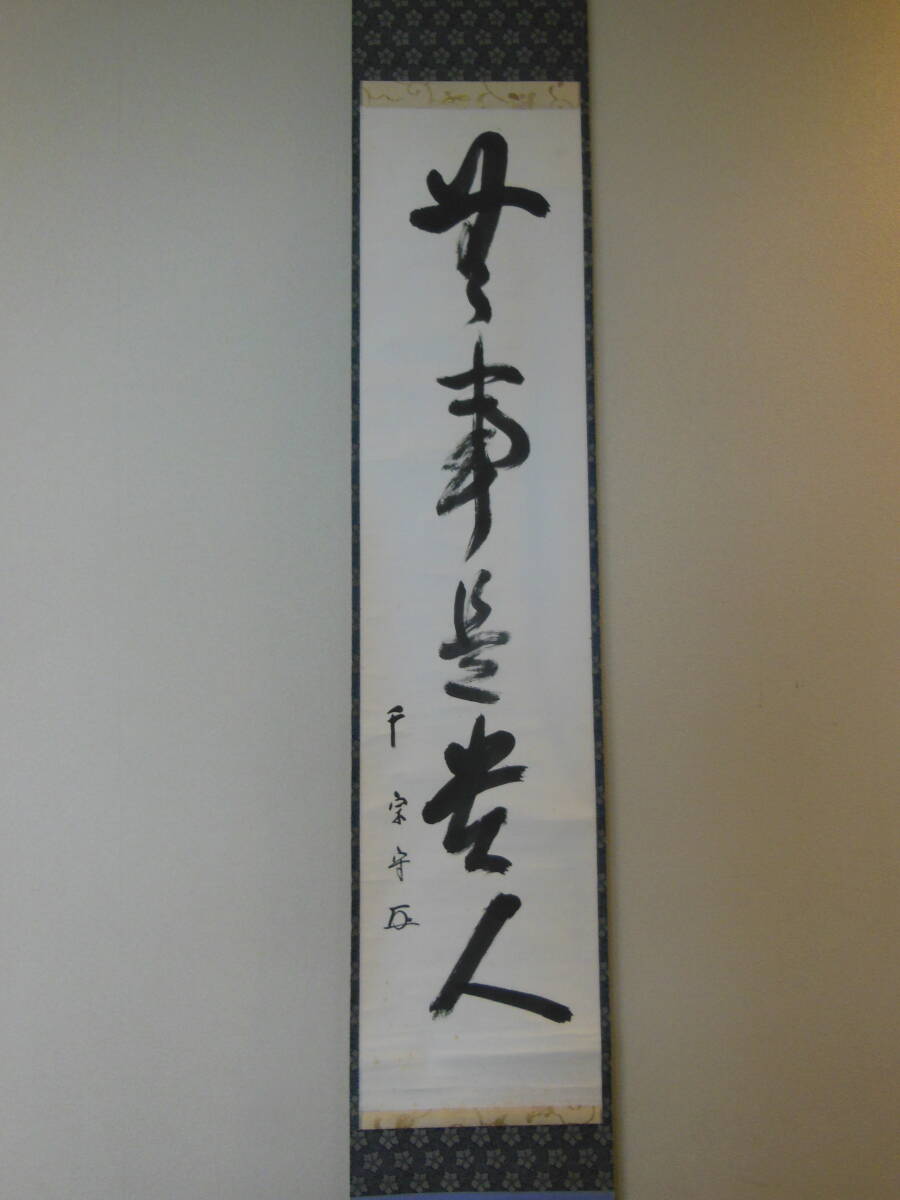 無事是貴人
千宗守